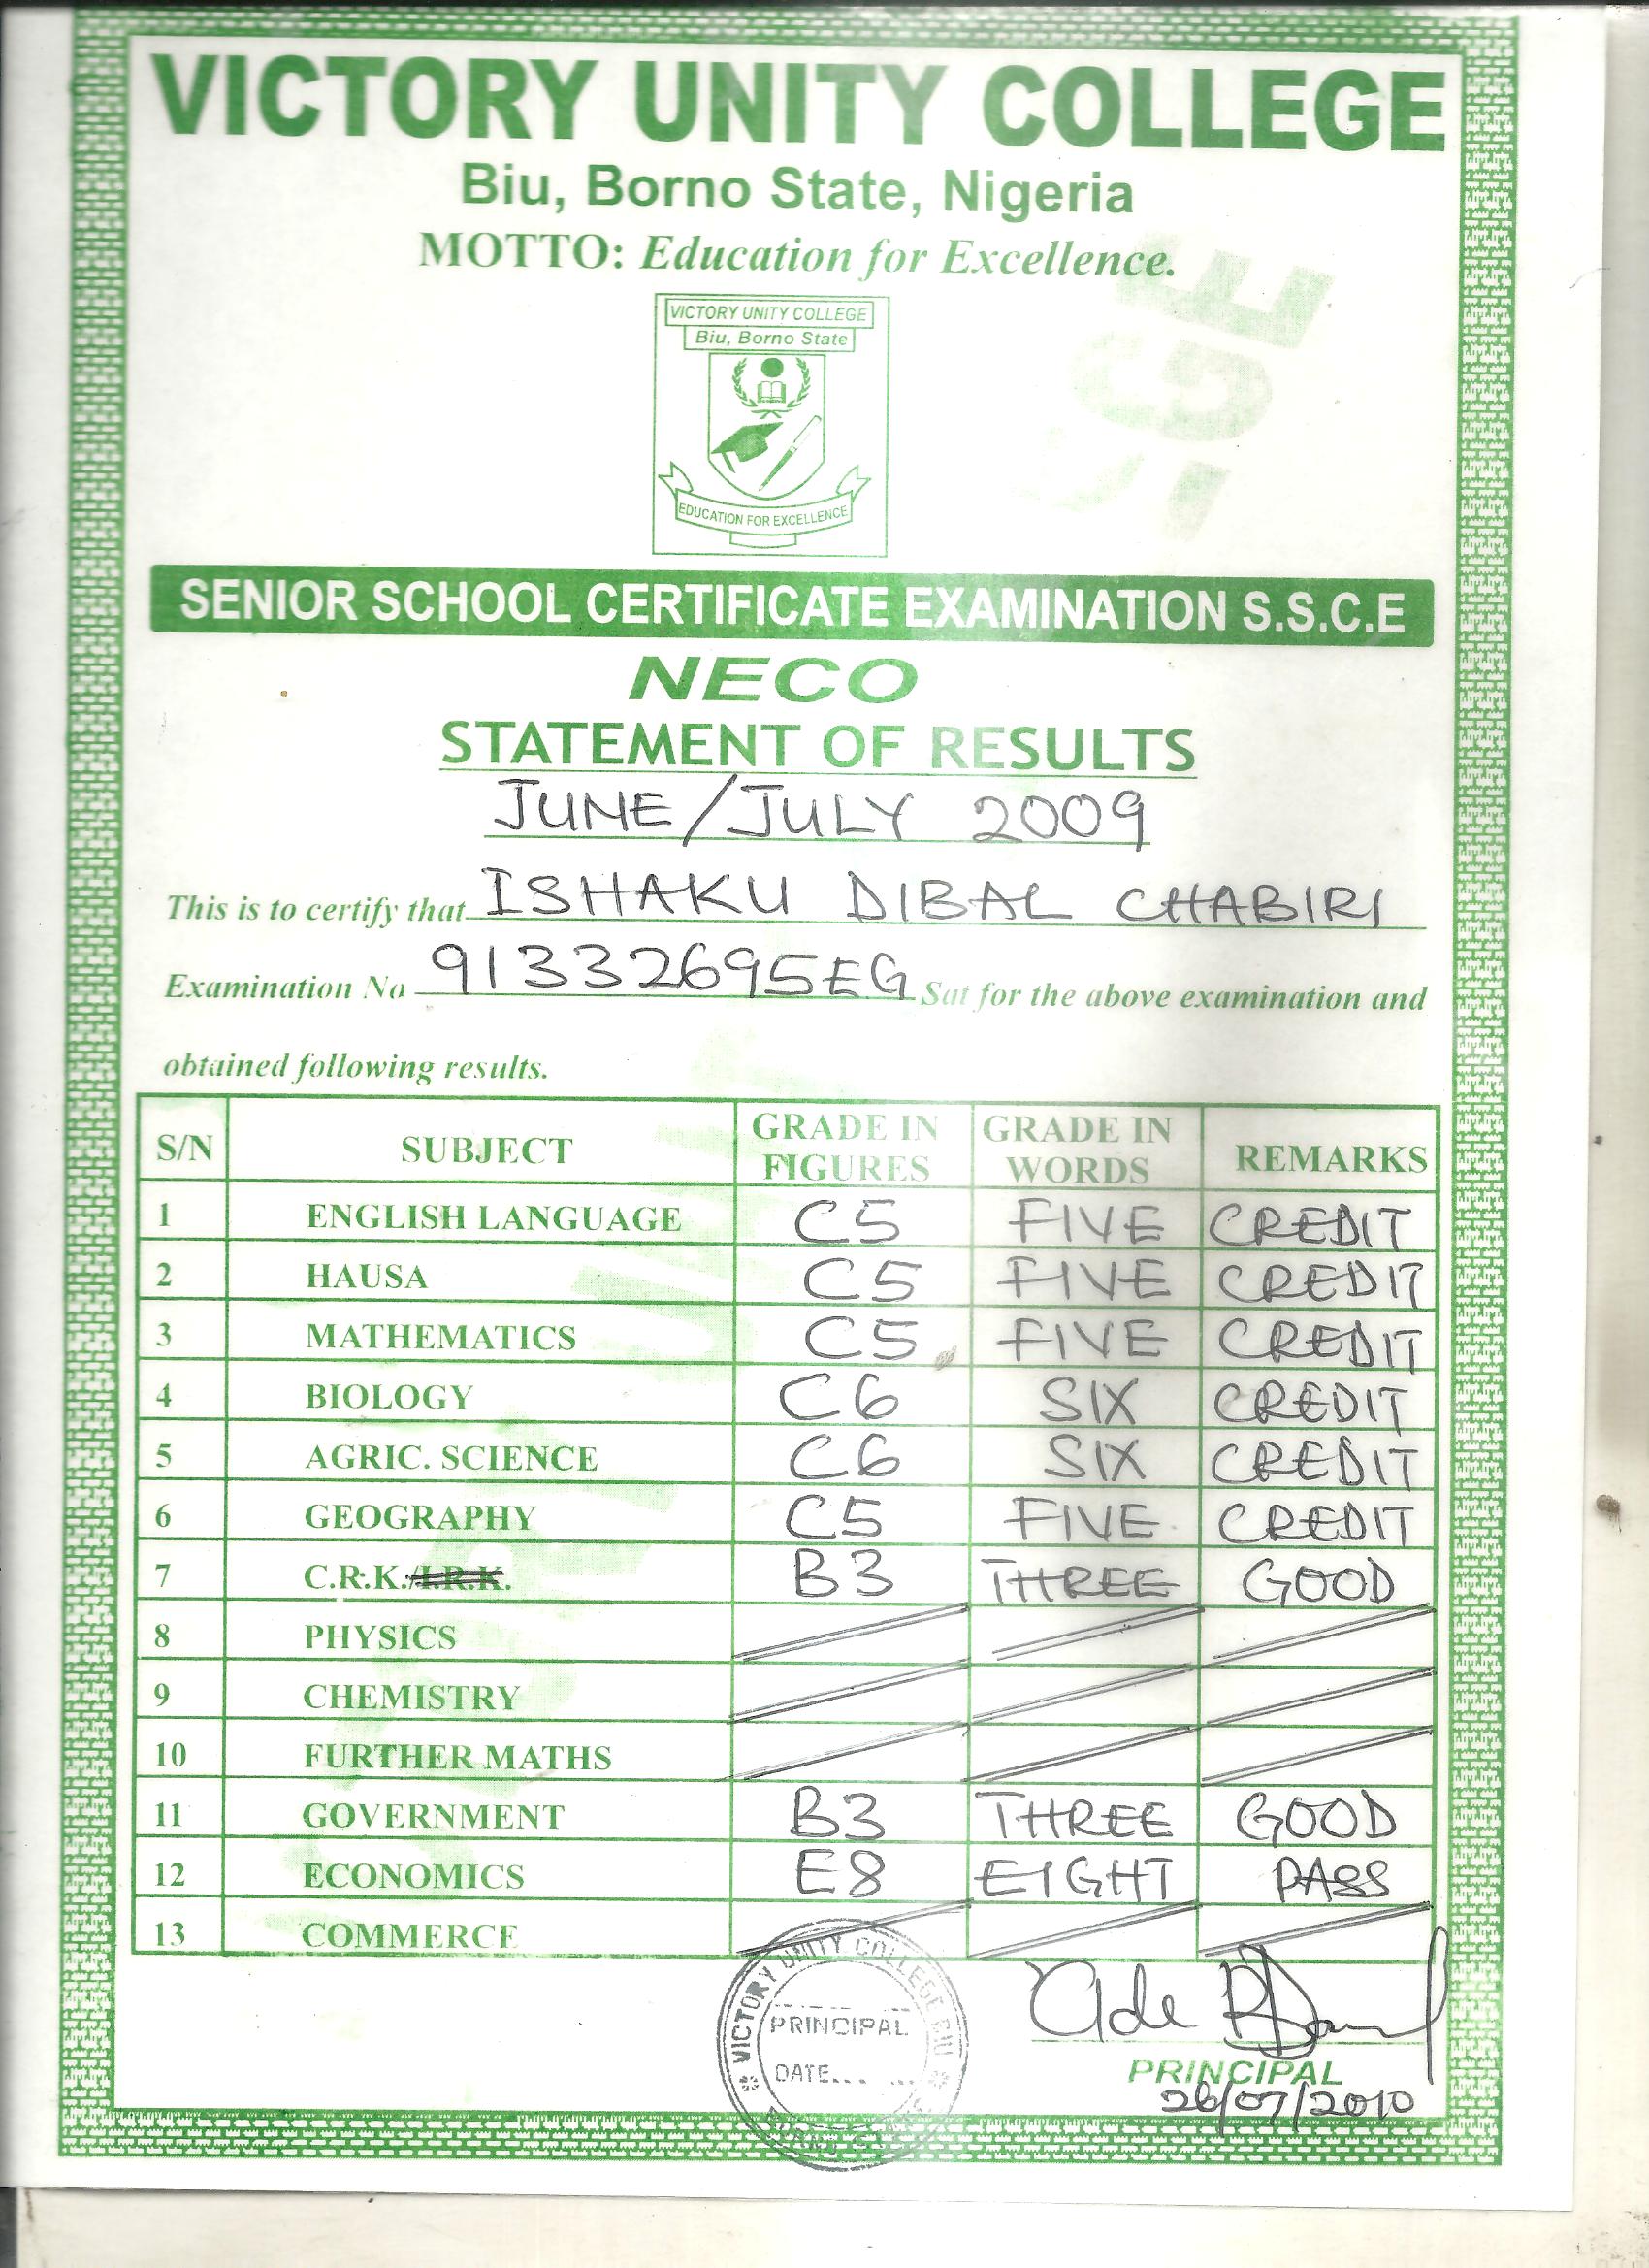 VICTORY UNITY COLLEGE
Biu, Borno State, Nigeria
MOTTO: Education for Excellence.
VICTORY UNITY COLLEGE
Biu, Borno State
EDUCATION FOR EXCELLENCE
SENIOR SCHOOL CERTIFICATE EXAMINATION S.S.C.E
NECO
STATEMENT OF RESULTS
JUNE/JULY 2009
This is to certify that ISHAKU DIBAL CHABIRI
Examination No 91332695EG Sat for the above examination and
obtained following results.
S/N SUBJECT GRADE IN FIGURES GRADE IN WORDS REMARKS
1 ENGLISH LANGUAGE C5 FIVE CREDIT
2 HAUSA C5 FIVE CREDIT
3 MATHEMATICS C5 FIVE CREDIT
4 BIOLOGY C6 SIX CREDIT
5 AGRIC. SCIENCE C6 SIX CREDIT
6 GEOGRAPHY C5 FIVE CREDIT
7 C.R.K./I.R.K. B3 THREE GOOD
8 PHYSICS
9 CHEMISTRY
10 FURTHER MATHS
11 GOVERNMENT B3 THREE GOOD
12 ECONOMICS E8 EIGHT PASS
13 COMMERCE
VICTORY UNITY COLLEGE BIU
PRINCIPAL
DATE
PRINCIPAL
26/07/2010